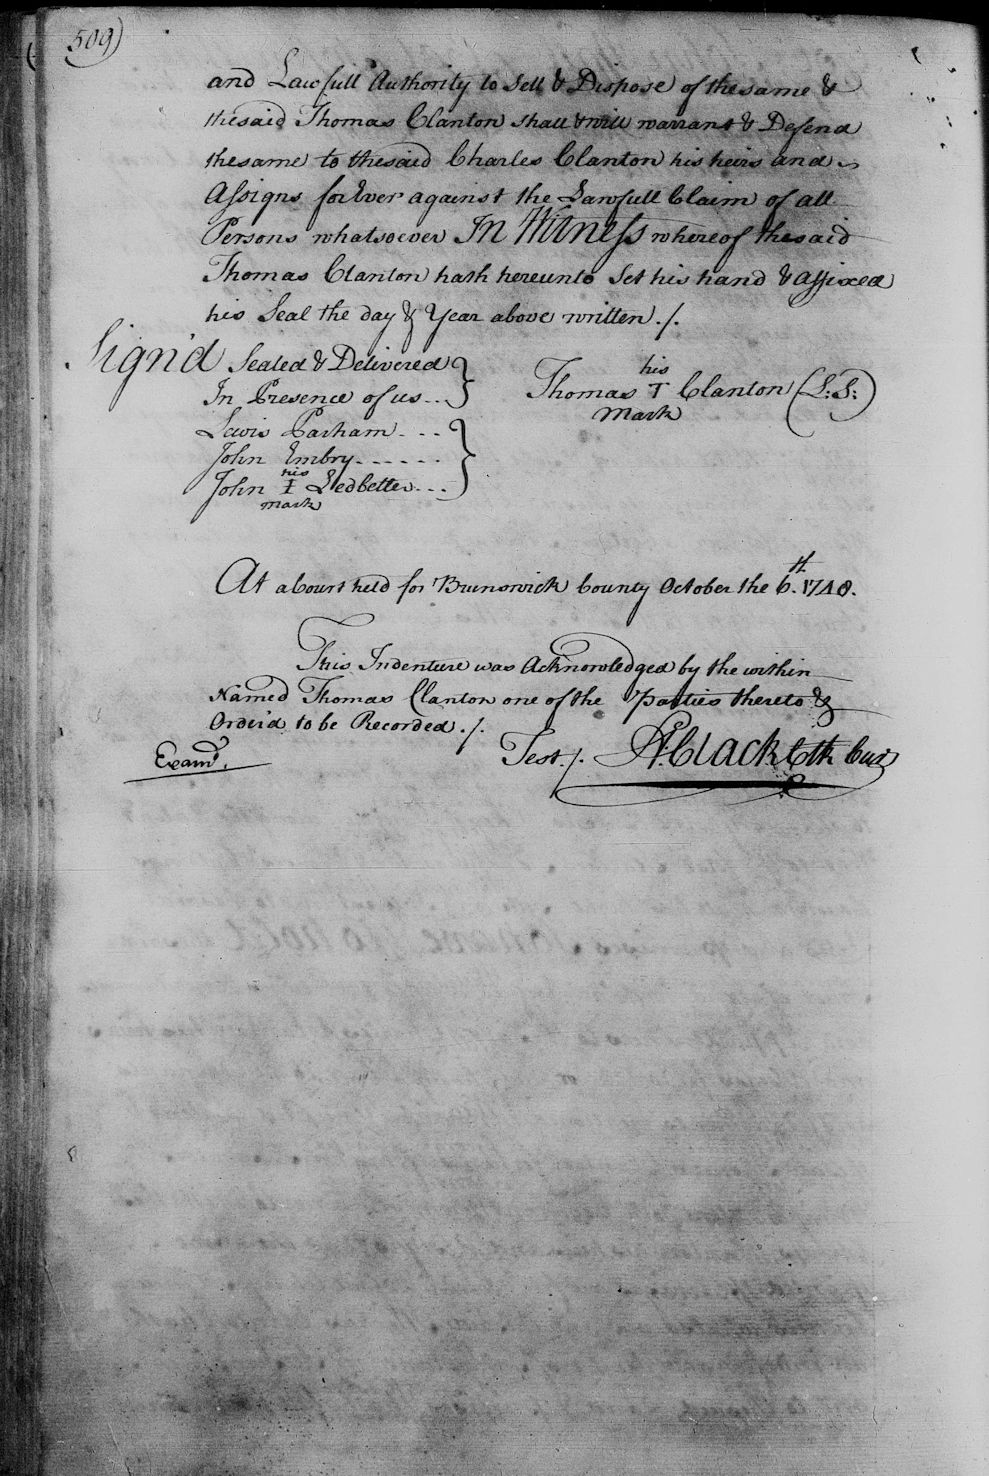 509)
and Lawfull Authority to Sell & Dispose of the same &
the said Thomas Clanton shall & will warrant & Defend
the same to the said Charles Clanton his heirs and
Assigns for Ever against the Lawfull Claim of all
Persons whatsoever In Witness whereof the said
Thomas Clanton hath hereunto Set his hand & affixed
his Seal the day & Year above written ./.
Sign'd Sealed & Delivered
In Presence of us ...
his
Thomas T Clanton (L:S:)
mark
Lewis Parham ...
John Embry ......
his
John I Ledbetter ...
mark
At a Court held for Brunswick County October the 6.th 1748.
This Indenture was Acknowledged by the within
Named Thomas Clanton one of the Parties thereto &
Order'd to be Recorded ./.
Exam'd. Test ./. Clack Clk Cur